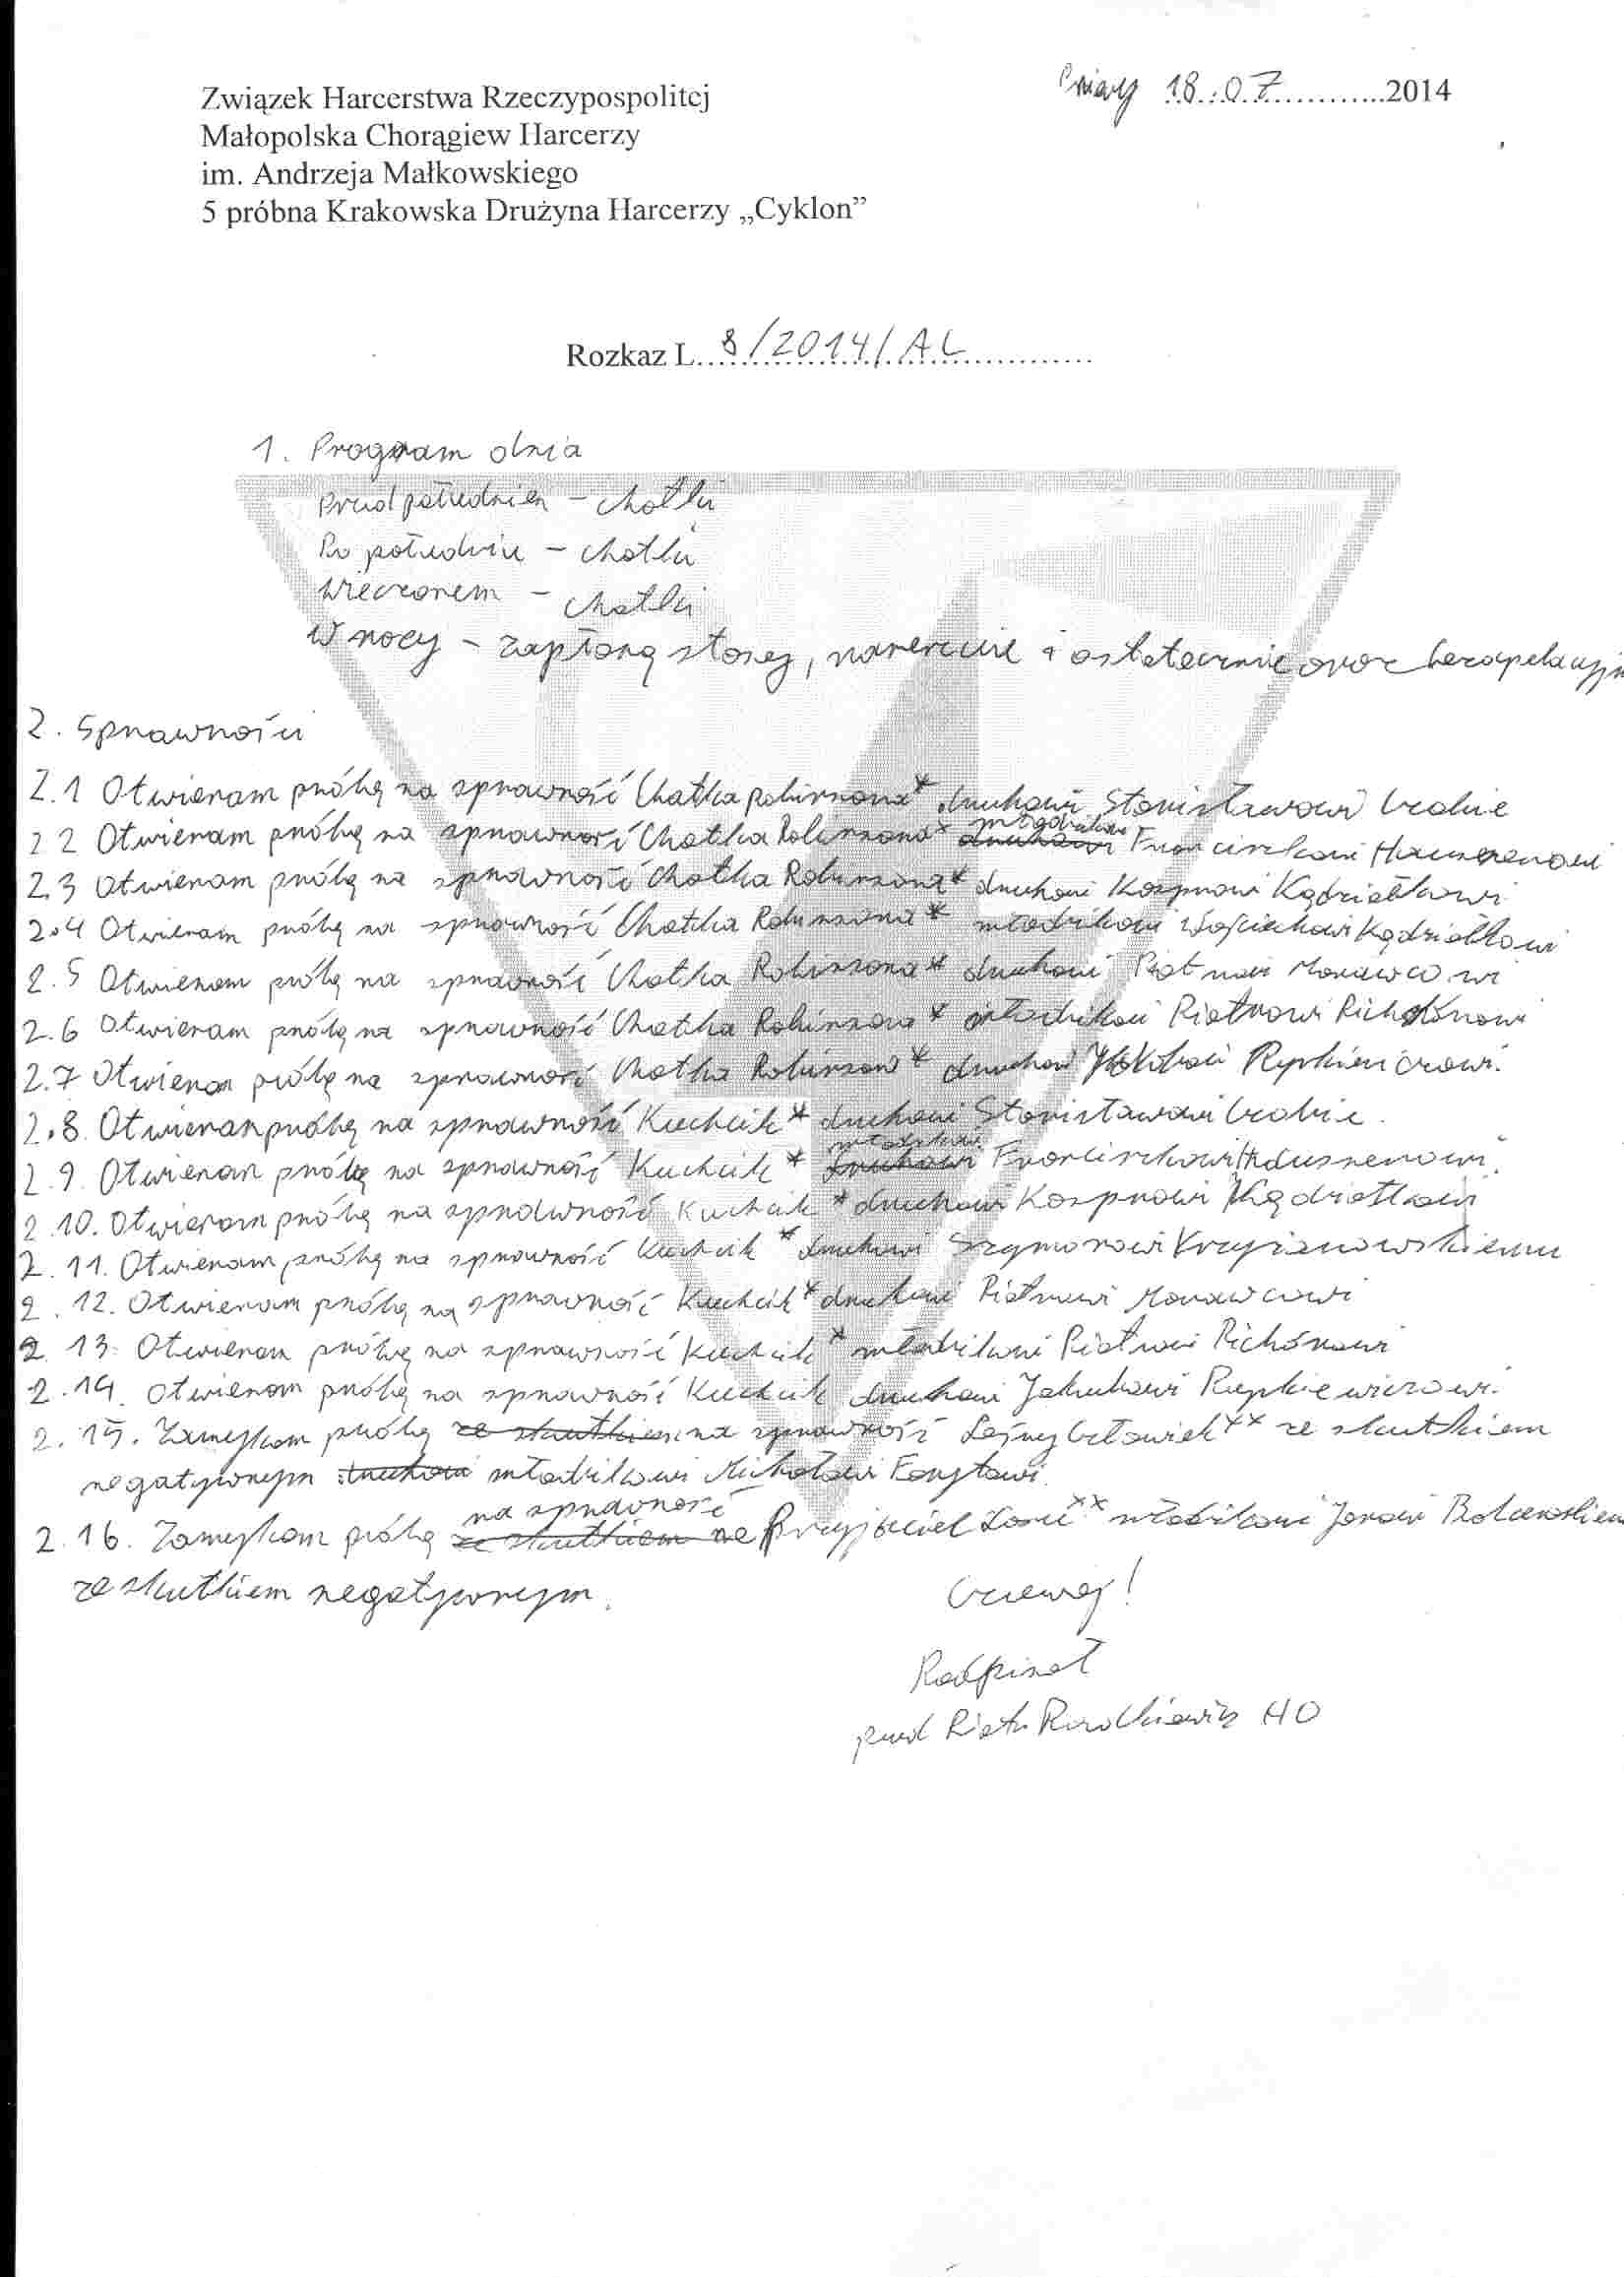 Związek Harcerstwa Rzeczypospolitej
Małopolska Chorągiew Harcerzy
im. Andrzeja Małkowskiego
5 próbna Krakowska Drużyna Harcerzy „Cyklon”
18.07 2014
Rozkaz L. 8/2014/AL
1. Program dnia
Przed południem - chatki
Po południu - chatki
Wieczorem - chatki
W nocy - zapłoną stosy, nareszcie i ostatecznie oraz
2. Sprawności
2.1 Otwieram próbę na sprawność Chatka Robinsona* druhowi Stanisławowi
2.2 Otwieram próbę na sprawność Chatka Robinsona* młodzikowi Franciszkowi
2.3 Otwieram próbę na sprawność Chatka Robinsona* druhowi Kacprowi Kądziołkowi
2.4 Otwieram próbę na sprawność Chatka Robinsona* młodzikowi Wojciechowi Kądziołkowi
2.5 Otwieram próbę na sprawność Chatka Robinsona* druhowi Piotrowi Morawcowi
2.6 Otwieram próbę na sprawność Chatka Robinsona* młodzikowi Piotrowi Pichórowi
2.7 Otwieram próbę na sprawność Chatka Robinsona* druhowi Jakubowi
2.8. Otwieram próbę na sprawność Kuchcik* druhowi Stanisławowi
2.9. Otwieram próbę na sprawność Kuchcik* młodzikowi Franciszkowi
2.10. Otwieram próbę na sprawność Kuchcik* druhowi Kacprowi Kądziołkowi
2.11. Otwieram próbę na sprawność Kuchcik* druhowi Szymonowi Krzyżanowskiemu
2.12. Otwieram próbę na sprawność Kuchcik* druhowi Piotrowi Morawcowi
2.13. Otwieram próbę na sprawność Kuchcik* młodzikowi Piotrowi Pichórowi
2.14. Otwieram próbę na sprawność Kuchcik druhowi Jakubowi
2.15. Zamykam próbę na sprawność Leśny Człowiek** ze skutkiem
negatywnym młodzikowi Mikołajowi
2.16. Zamykam próbę na sprawność Przyjaciel Lasu** młodzikowi Janowi
ze skutkiem negatywnym.
Czuwaj!
pwd Piotr HO